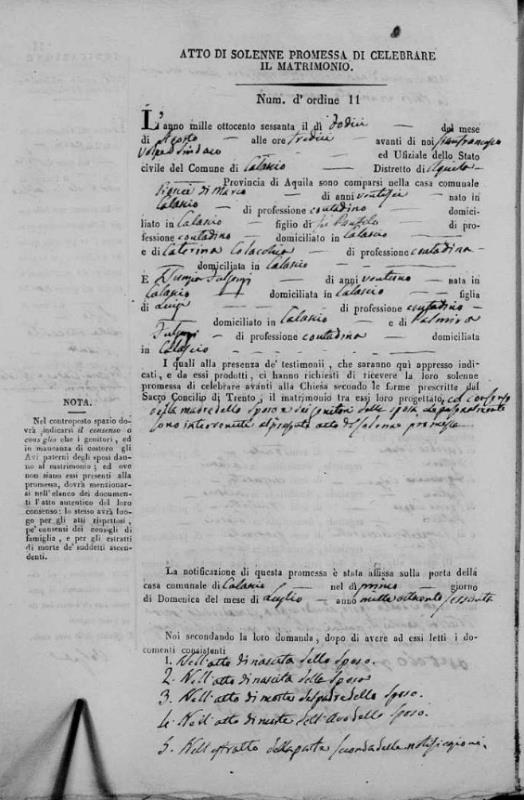 ATTO DI SOLENNE PROMESSA DI CELEBRARE
IL MATRIMONIO.
Num. d' ordine 11
L'anno mille ottocento sessanta il dì dodici del mese
di Agosto alle ore tredici avanti di noi Gianfrancesco
Volpe Sindaco ed Ufiziale dello Stato
civile del Comune di Calascio Distretto di Aquila
Provincia di Aquila sono comparsi nella casa comunale
di Marco di anni ventisei nato in
Calascio di professione contadino domici-
liato in Calascio figlio di fu Panfilo di pro-
fessione contadino domiciliato in Calascio
e di Caterina Colacchia di professione contadina
domiciliata in Calascio
E di anni ventuno nata in
Calascio domiciliata in Calascio figlia
di Luigi di professione contadino
domiciliato in Calascio e di Palmira
di professione contadina domiciliata
in Calascio
I quali alla presenza de' testimonii, che saranno quì appresso indi-
cati, e da essi prodotti, ci hanno richiesti di ricevere la loro solenne
promessa di celebrare avanti alla Chiesa secondo le forme prescritte dal
Sacro Concilio di Trento, il matrimonio tra essi loro progettato, col consenso
della madre dello Sposo e dei genitori della sposa
sono intervenuti al presente atto di solenne promessa
NOTA.
Nel controposto spazio do-
vrà indicarsi il consenso o
consiglio che i genitori, ed
in mancanza di costoro gli
Avi paterni degli sposi dan-
no al matrimonio; ed ove
non siano essi presenti alla
promessa, dovrà mentovar-
si nell'elenco dei documen-
ti l'atto autentico del loro
consenso: lo stesso avrà luo-
go per gli atti rispettosi,
pe' consensi dei consigli di
famiglia, e per gli estratti
di morte de' suddetti ascen-
denti.
La notificazione di questa promessa è stata affissa sulla porta della
casa comunale di Calascio nel dì primo giorno
di Domenica del mese di Luglio anno mille ottocento sessanta
Noi secondando la loro domanda, dopo di avere ad essi letti i do-
cumenti consistenti
1. Nell'atto di nascita dello Sposo.
2. Nell'atto di nascita della Sposa
3. Nell'atto di morte del padre dello Sposo.
4. Nell'atto di morte dell'Avo dello Sposo.
5. Nell'estratto della parte seconda delle notificazioni.